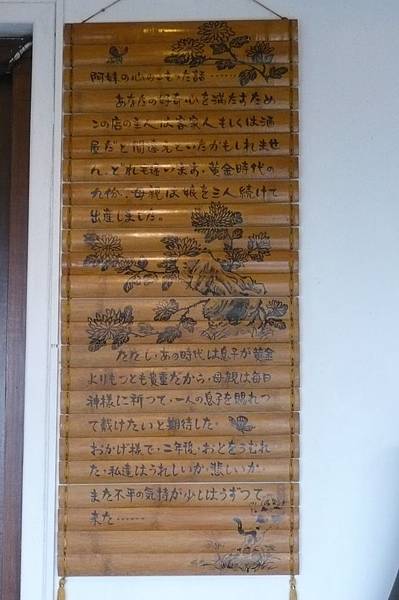 阿妹の心のこもった話……
あなたの好奇心を満たすため
この店の主人は客家人もしくは酒
屋だと間違えていたかもしれませ
ん、どれも違います。黄金時代の
九份、母親は娘を三人続けて
出産しました。
ただし、あの時代は息子が黄金
よりもっとも貴重だから、母親は毎日
神様に祈って、一人の息子を賜れっ
て戴けたいと期待した。
おかげ様で、二年後、おとをうむれ
た、私達はうれしいか、悲しいか、
また不平の気持が少しはうずって
来た……